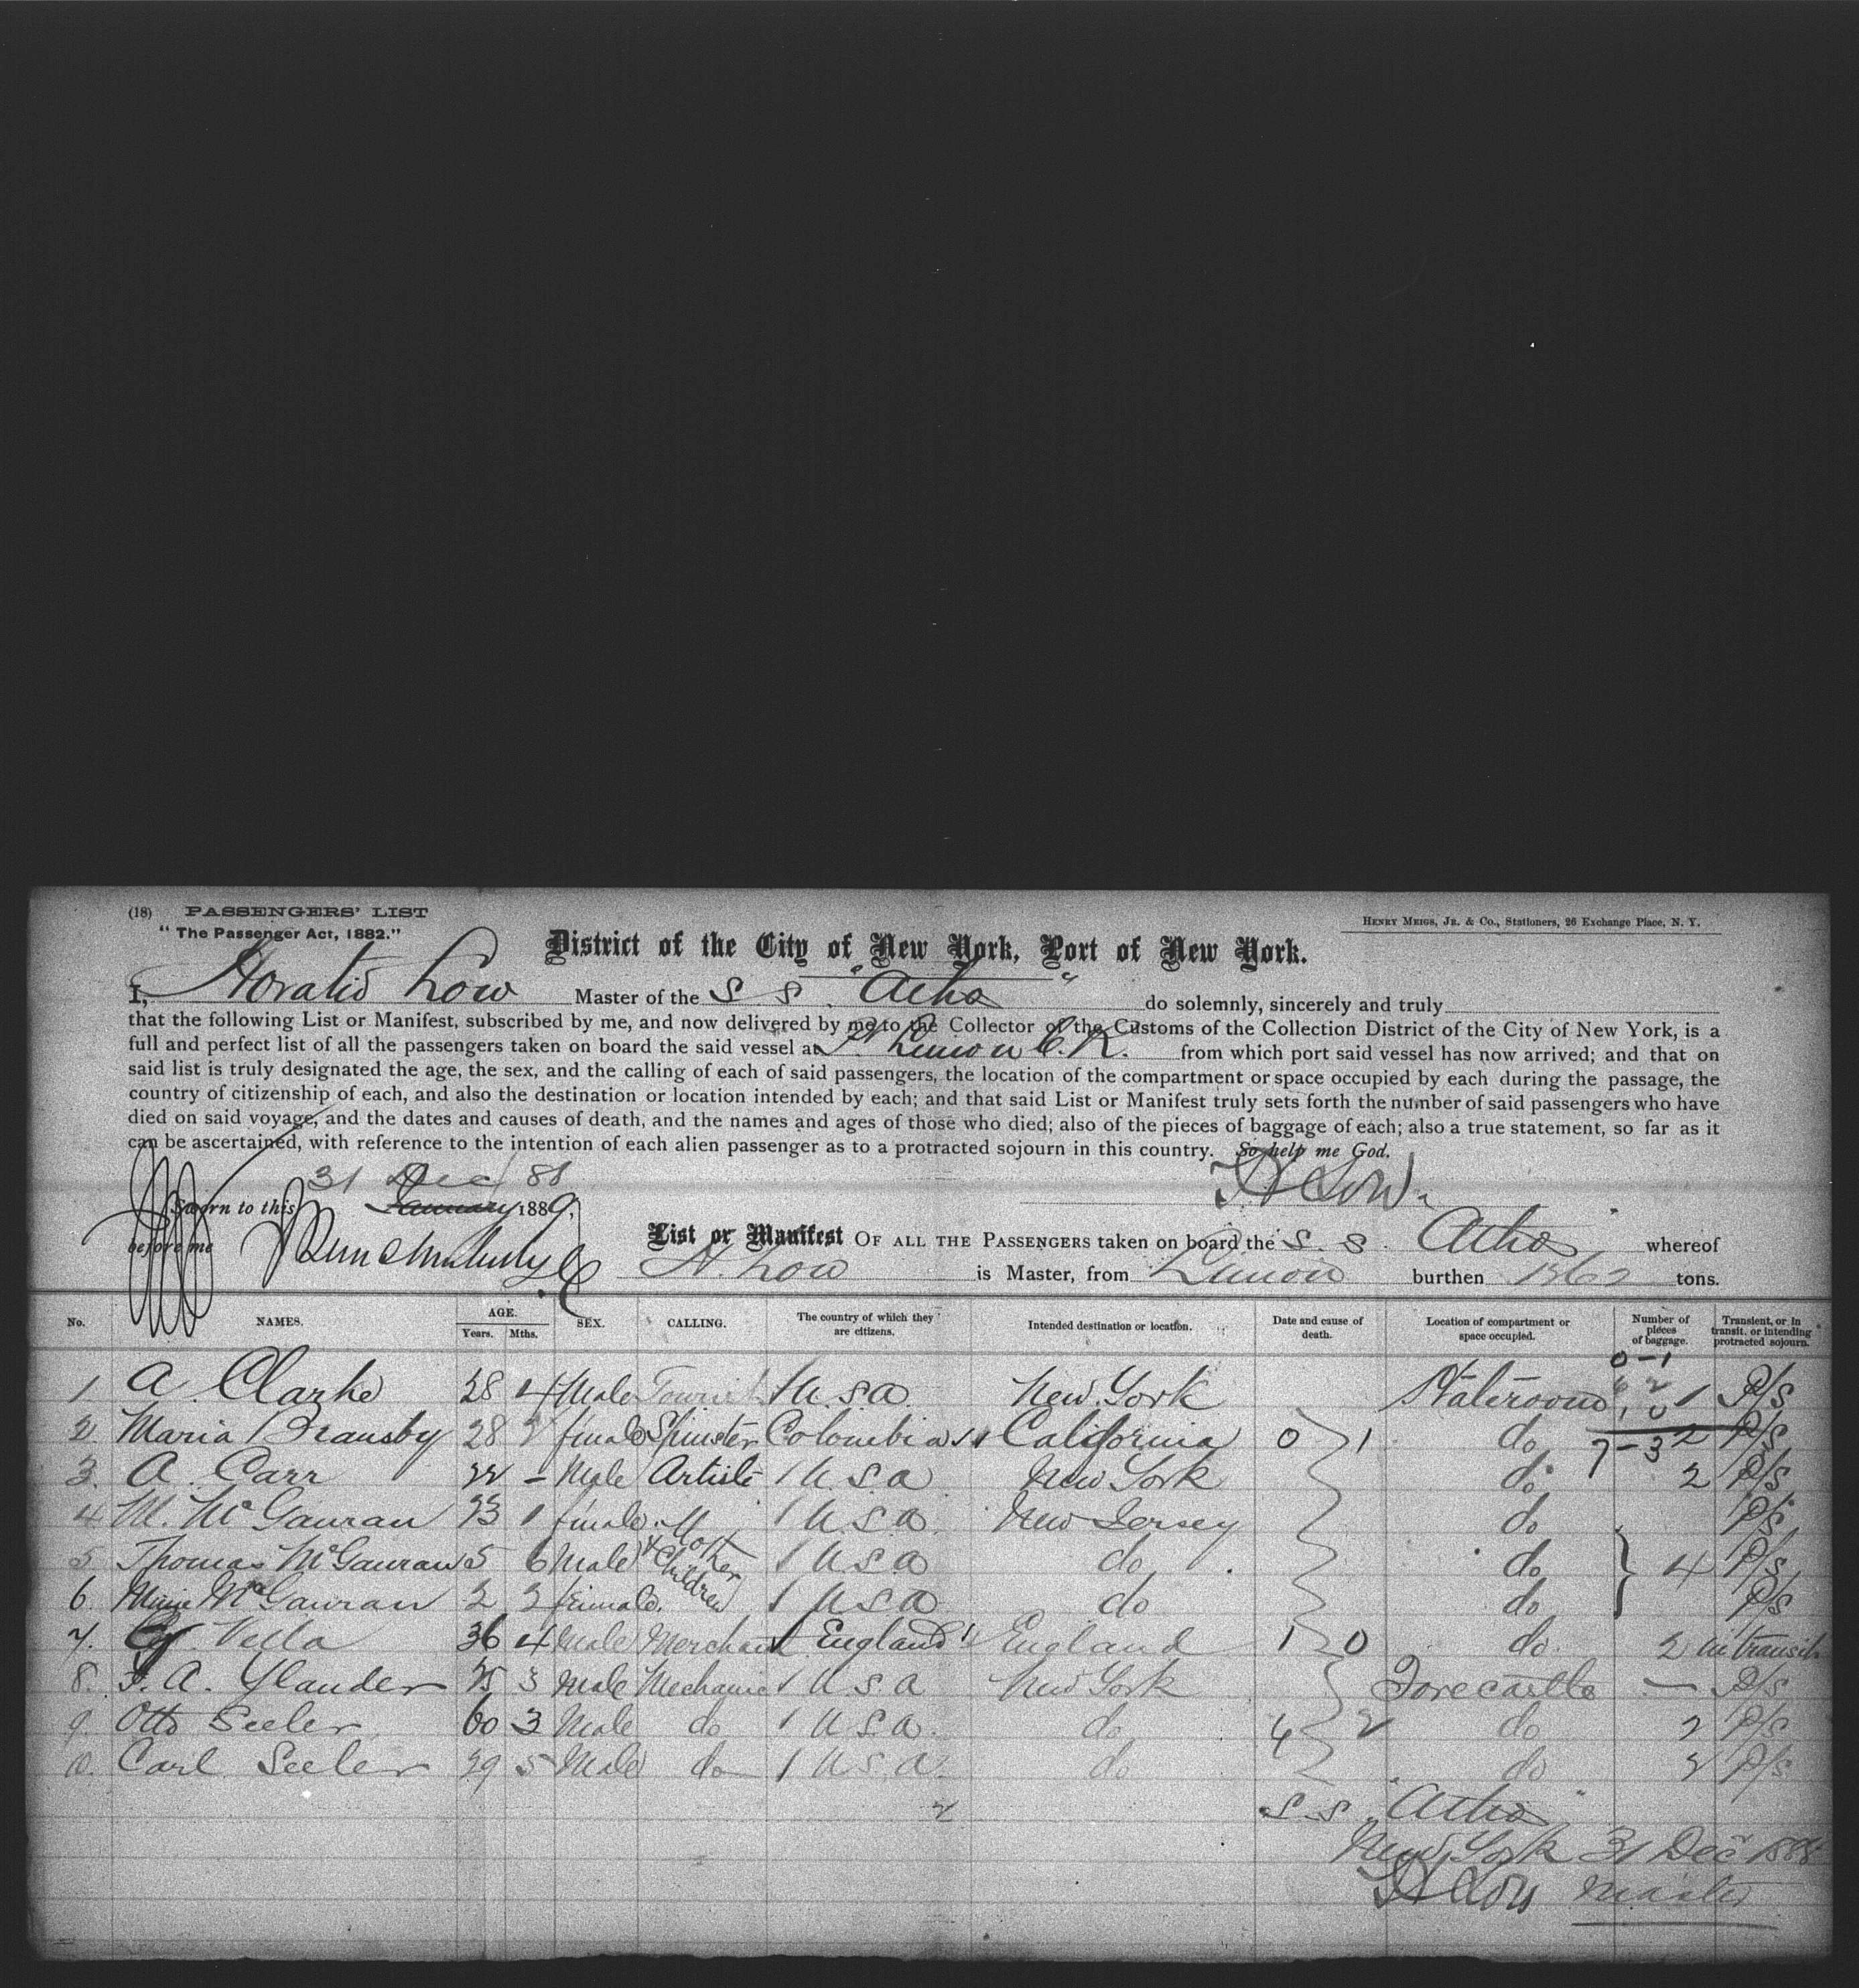 (18) PASSENGERS' LIST
"The Passenger Act, 1882."
HENRY MEIGS, JR. & CO., Stationers, 26 Exchange Place, N. Y.
District of the City of New York, Port of New York.
I, Horatio Low Master of the S S "Athos" do solemnly, sincerely and truly
that the following List or Manifest, subscribed by me, and now delivered by me to the Collector of the Customs of the Collection District of the City of New York, is a
full and perfect list of all the passengers taken on board the said vessel at Pt Limon C. R. from which port said vessel has now arrived; and that on
said list is truly designated the age, the sex, and the calling of each of said passengers, the location of the compartment or space occupied by each during the passage, the
country of citizenship of each, and also the destination or location intended by each; and that said List or Manifest truly sets forth the number of said passengers who have
died on said voyage, and the dates and causes of death, and the names and ages of those who died; also of the pieces of baggage of each; also a true statement, so far as it
can be ascertained, with reference to the intention of each alien passenger as to a protracted sojourn in this country. So help me God.
H Low
31 Dec / 88
Sworn to this January 1889,
before me
List or Manifest OF ALL THE PASSENGERS taken on board the S. S. Athos whereof
H. Low is Master, from Limon burthen tons.
No. NAMES. AGE. Years. Mths. SEX. CALLING. The country of which they are citizens. Intended destination or location. Date and cause of death. Location of compartment or space occupied. Number of pieces of baggage. Transient, or in transit, or intending protracted sojourn.
0-1
6 2
1 0
7-3
1 A Clarke 28 4 Male Tourist U.S.A. New York Stateroom 1 P/s
2 Maria Bransby 28 female Spinster Colombia California 0 1 do 2 P/s
3. A. Carr 22 - Male Artiste U.S.A New York do 2 P/s
4. M. McGauran 23 1 female Mother U.S.A. New Jersey do P/s
5 Thomas McGauran 5 6 Male & Children U.S.A do do 4 P/s
6 McGauran 2 female U.S.A do do P/s
7. Vella 36 4 Male Merchant England England 1 0 do. 2 in transit
8. A. Ylander 25 3 Male Mechanic U.S.A New York Forecastle — P/s
9. Otto Seeler 60 3 Male do U.S.A. do 4 2 do 2 P/s
10. Carl Seeler 29 5 Male do U.S.A. do do 2 P/s
2
S. S. "Athos"
New York 31 Decr 1888
H Low Master